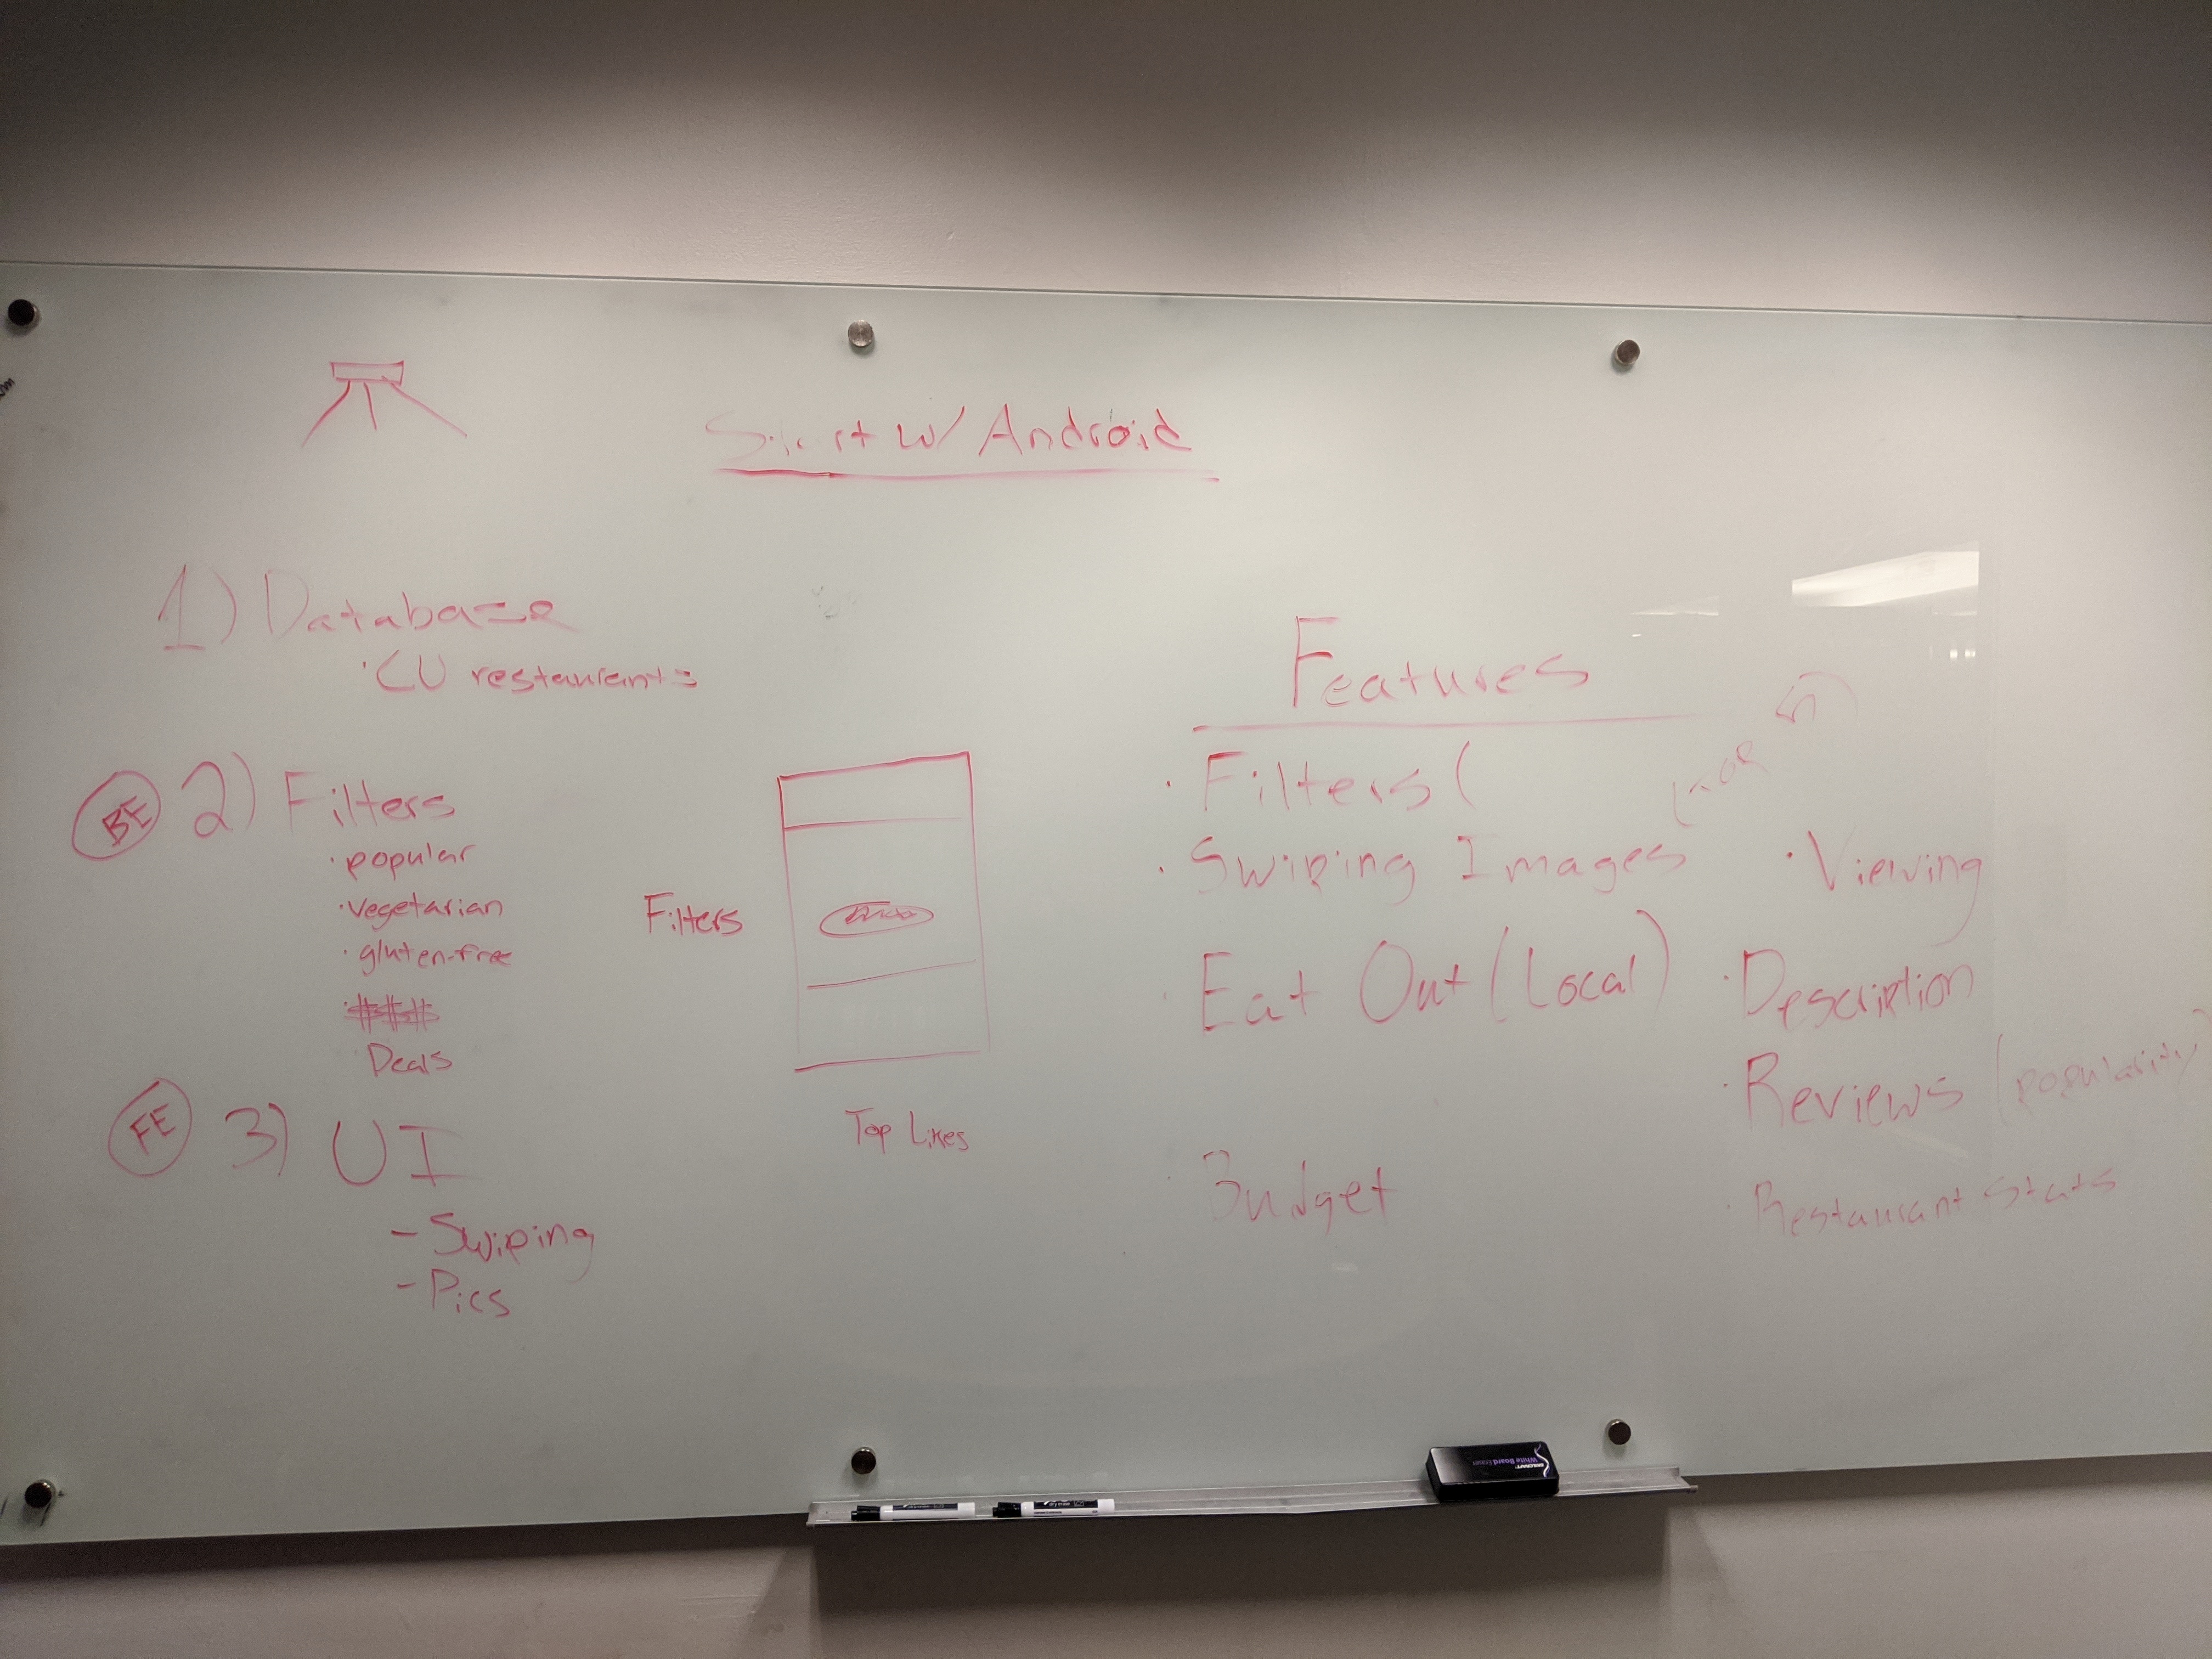 Start w/ Android
1) Database
· CU restaurants
BE 2) Filters
· popular
· vegetarian
· gluten-free
Deals
FE 3) UI
- Swiping
- Pics
Filters
Top Likes
Features
· Filters (
· Swiping Images
· Eat Out (Local)
· Budget
· Viewing
· Description
· Reviews (popularity)
· Restaurant stats
White Board Eraser